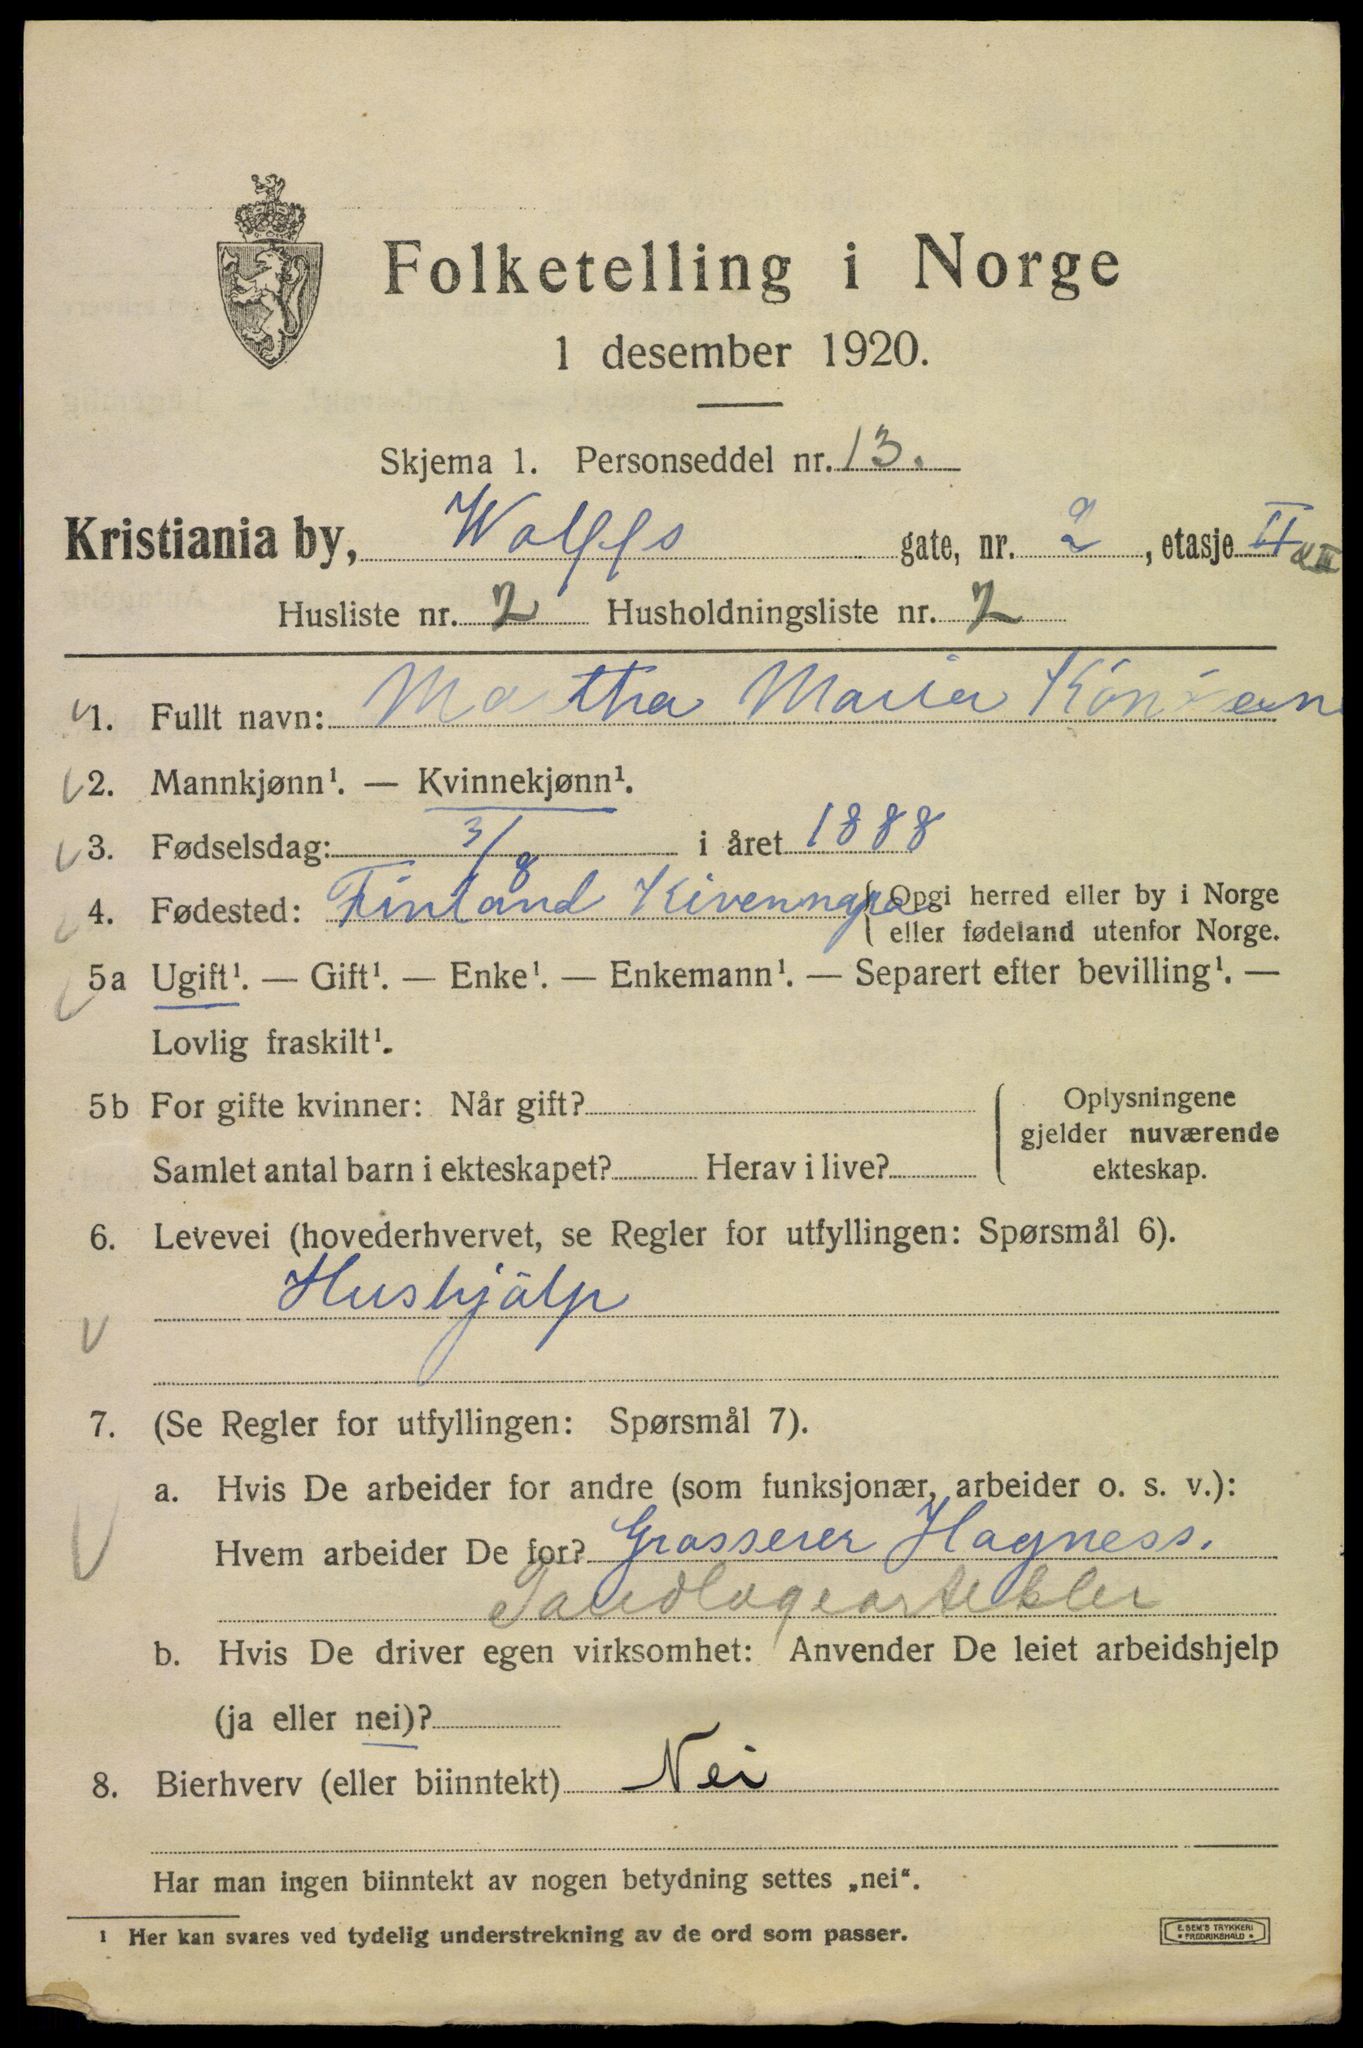 Folketelling i Norge
1 desember 1920.
Skjema 1. Personseddel nr. 13.
Kristiania by, Wolffs gate, nr. 2, etasje II
Husliste nr. 2 Husholdningsliste nr. 2
1. Fullt navn: Martha Maria
2. Mannkjønn¹. — Kvinnekjønn¹.
3. Fødselsdag: 3/8 i året 1888
4. Fødested: Finland Kivennapa { Opgi herred eller by i Norge
eller fødeland utenfor Norge.
5a Ugift¹. — Gift¹. — Enke¹. — Enkemann¹. — Separert efter bevilling¹. —
Lovlig fraskilt¹.
5b For gifte kvinner: Når gift?
Samlet antal barn i ekteskapet? Herav i live?
Oplysningene
gjelder nuværende
ekteskap.
6. Levevei (hovederhvervet, se Regler for utfyllingen: Spørsmål 6).
Hushjälp
7. (Se Regler for utfyllingen: Spørsmål 7).
a. Hvis De arbeider for andre (som funksjonær, arbeider o. s. v.):
Hvem arbeider De for? Grosserer Hagness.
Tandlægeartikler
b. Hvis De driver egen virksomhet: Anvender De leiet arbeidshjelp
(ja eller nei)?
8. Bierhverv (eller biinntekt) Nei
Har man ingen biinntekt av nogen betydning settes „nei“.
¹ Her kan svares ved tydelig understrekning av de ord som passer.
E. SEM'S TRYKKERI
• FREDRIKSHALD •